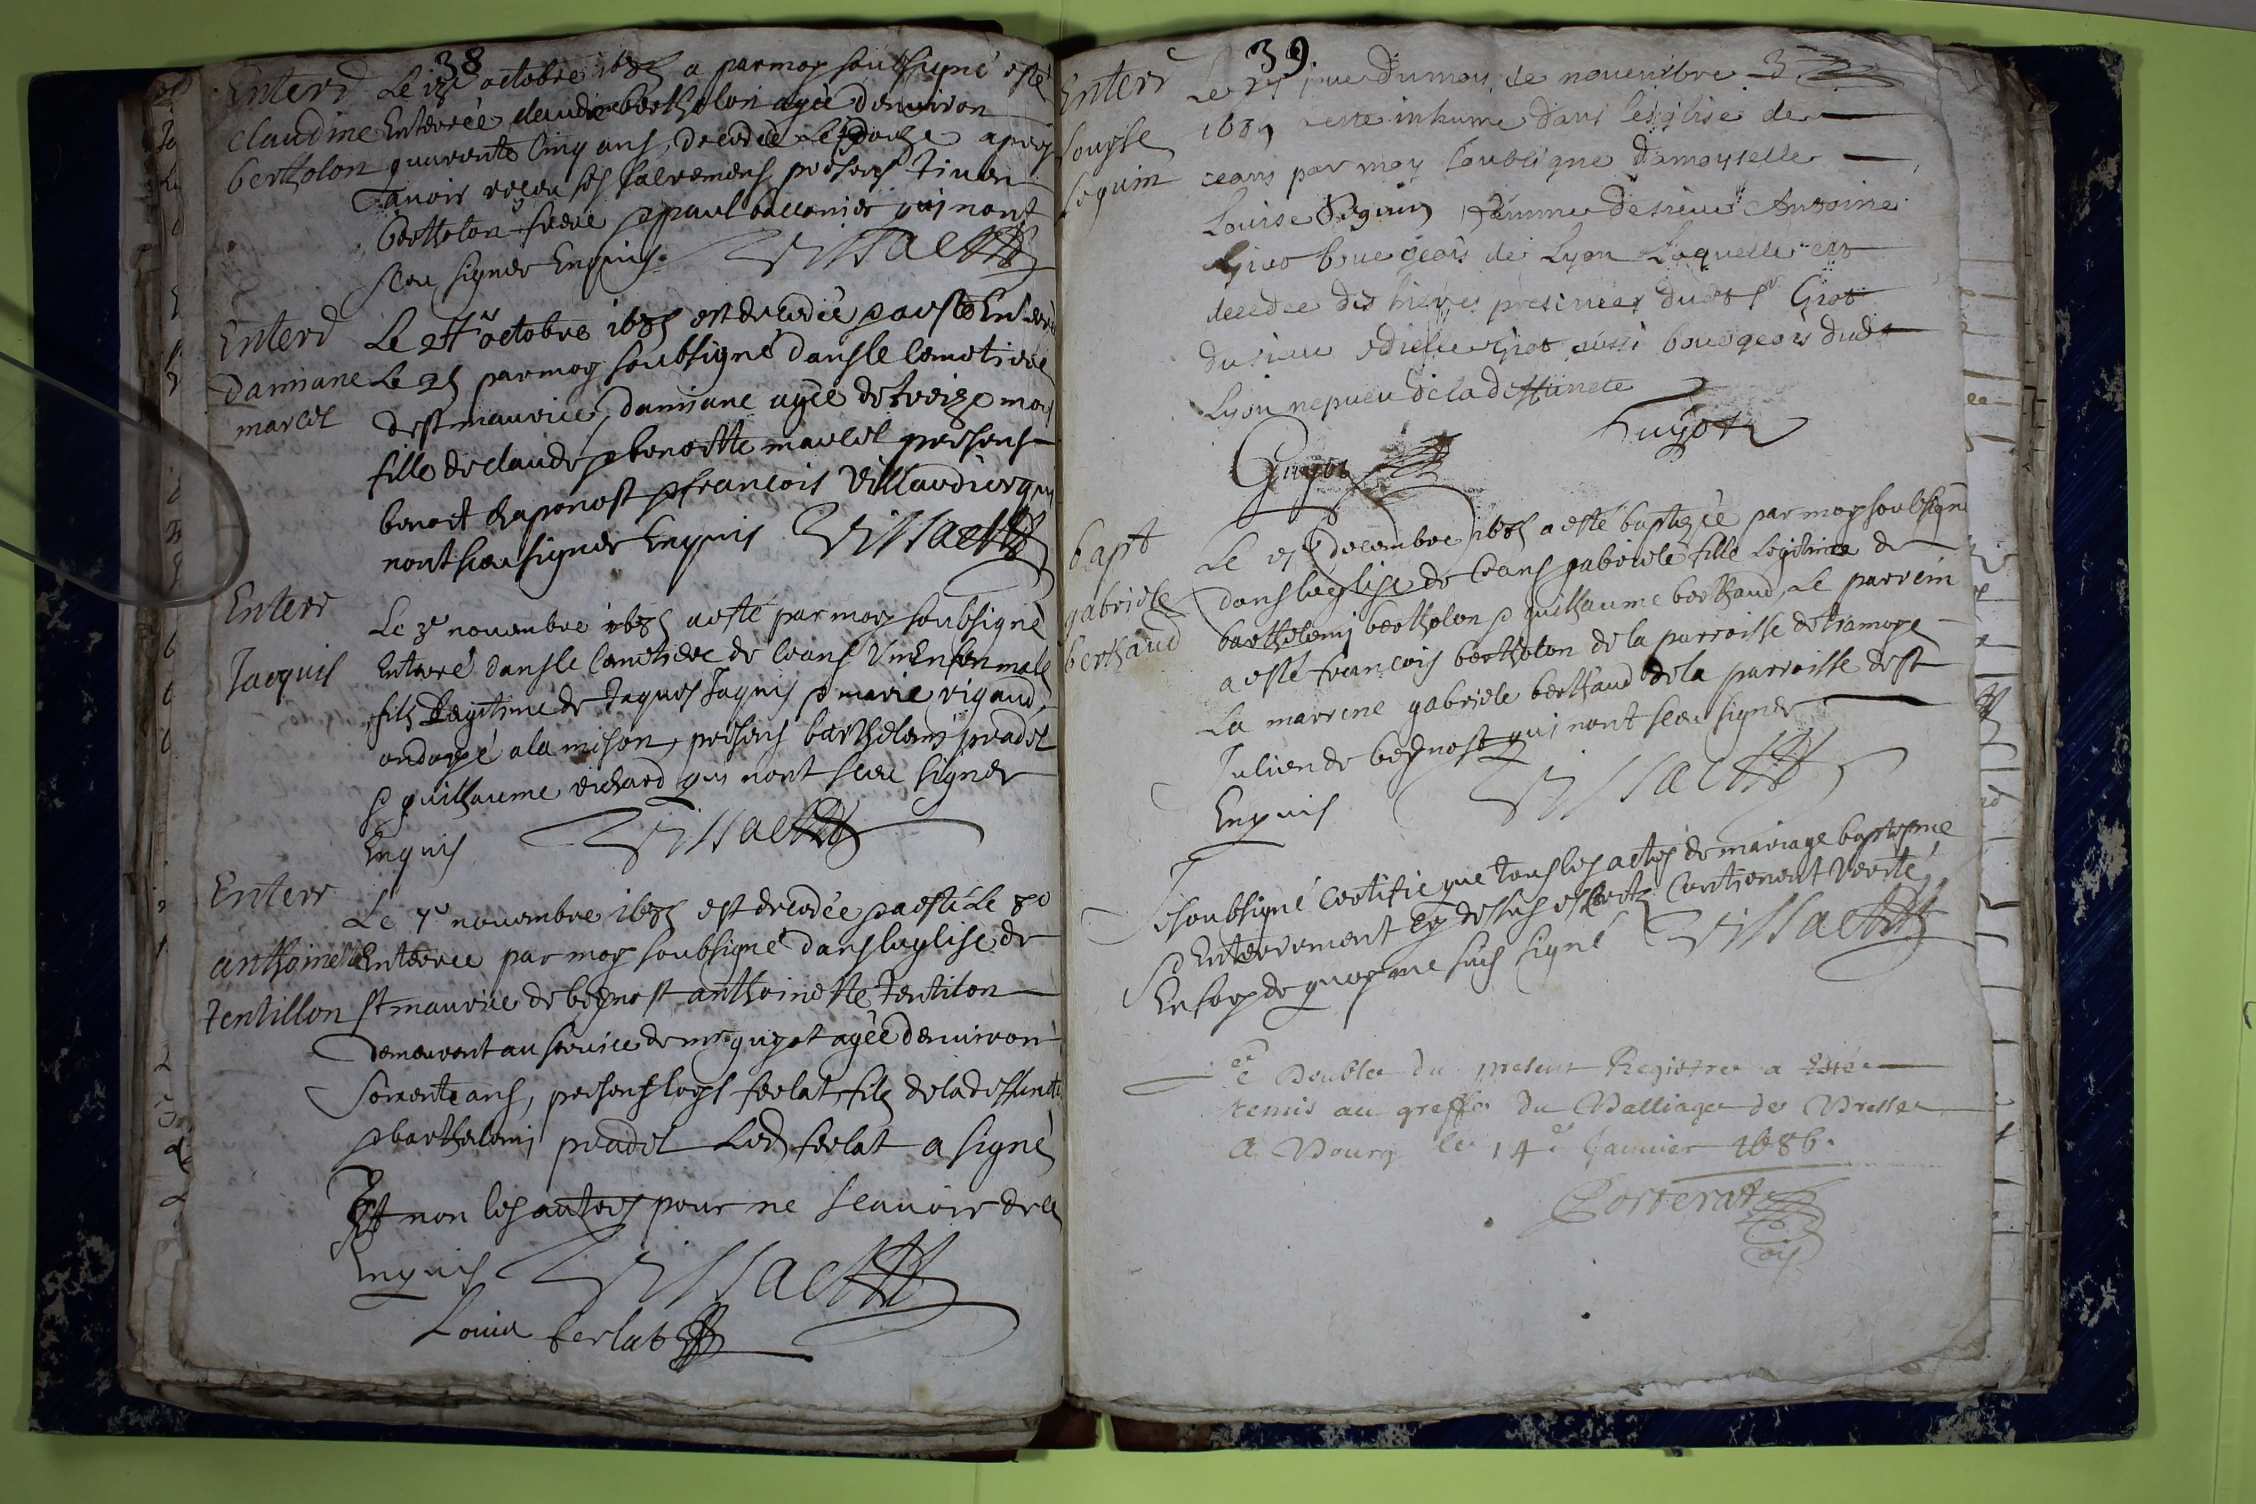 38
Enterr
claudine
bertholon
Le 13e octobre 1685 a par moy soubsigné esté
Enterrée claudine bertholon agée denuiron
quarente cinq ans, decedée Le douze apres
auoir receu ses sacremens presens
bertholon frere & paul qui nont
sceu signer Enquis. Vissaect
Enterr
damiane
marcel
Le 24e octobre 1685 est decedée & a esté Enterrée
Le 25 par moy soubsigné dans le Cemetiere
de st maurice, damiane agée de treize mois
fille de claude & benoitte marcel presens
benoit chaponost & francois Villardier qui
nont sceu signer Enquis Vissaect
Enterr
Jacquis
Le 3e nouembre 1685 a esté par moy soubsigné
Enterré dans le Cemetiere de ceans Vn Enfen male
fils Legitime de Jaques Jaquis & marie rigaud,
ondoyé a la mison, presens barthelemi pradel
& guilhaume richard qui nont sceu signer
Enquis Vissaect
Enterr
anthoinette
tentillon
Le 7e nouembre 1685 est decedée & a esté Le 8e
Enterrée par moy soubsigné dans leglise de
st maurice de beynost anthoinette tentilon
demeurent au seruice de mr guyot agée denuiron
soixente ans, presens loys ferlat fils de la deffuncte
& barthelemi pradel Led ferlat a signé
Et non les autres pour ne scauoir de ce
Enquis Vissaect
Louis ferlat
39
Enterr
Louyse
seguin
Le 27 jour du mois de nouembre
1685 a esté inhume dans leglise de
ceans par moy soubsigne damoyselle
Louise Seguin femme de sieur Antoine
Giot bourgeois de Lyon Laquelle est
decedee dès hier presences dudt sr Giot
du sieur Giot aussi bourgeois dudt
Lyon nepueu de la deffuncte
Guyot Guyot
bapt
gabriele
berthaud
Le decembre 1685 a esté baptizée par moy soubsigné
dans leglise de ceans gabriele fille Legitime de
barthelemi bertholon & guilhaume berthaud, Le parrein
a esté francois bertholon de la parroisse de tramoye
La marrene gabriele berthaud de la parroisse de st
Julien de beynost qui nont sceu signer
Enquis Vissaect
Je soubsigné Certifie que tous les actes de mariage baptesme
& Enterrement cy dessus escrits Contienent Verité
En foy de quoy me suis signé Vissaect
Le Double du present Registre a esté
remis au greffe du Balliage de Bresse
A Bourg le 14e Januier 1686.
Corterat